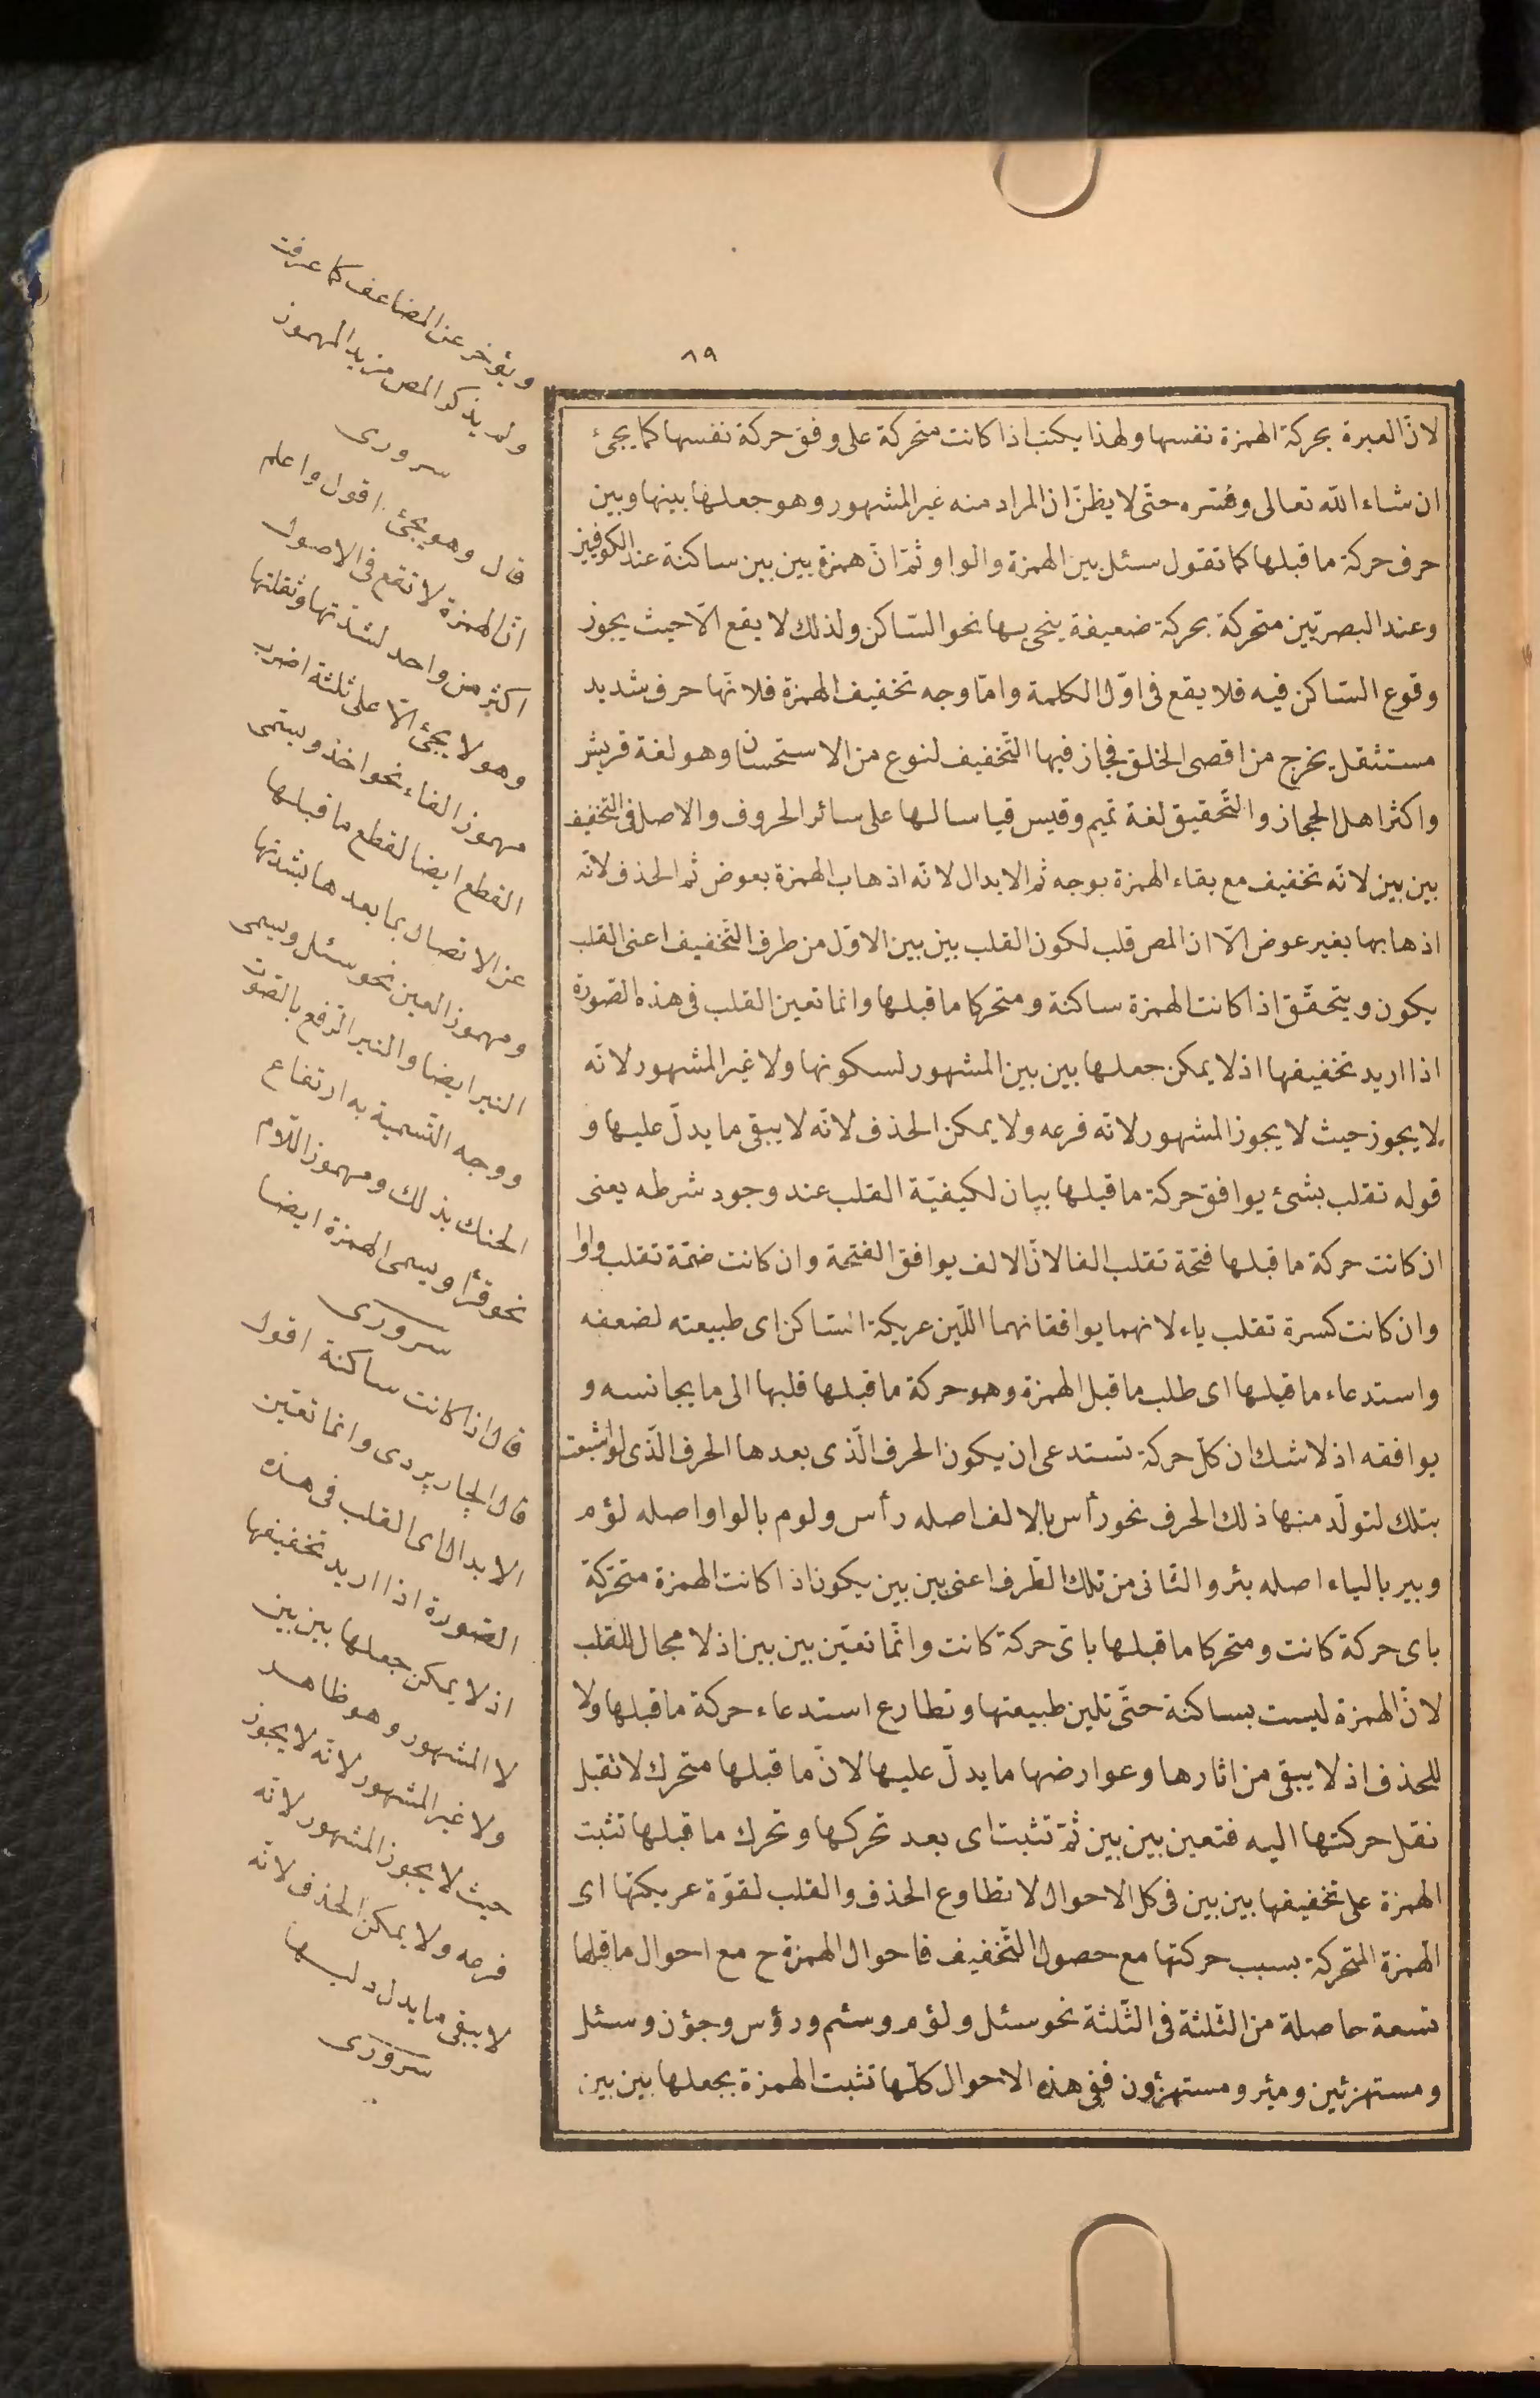 ٨٩
لانّ العبرة بحركة الهمزة نفسها ولهذا يكتب اذا كانت متحركة على وفق حركة نفسها كما يجئ
ان شاء الله تعالى وفسّره حتّى لا يظنّ ان المراد منه غير المشهور وهو جعلها بينها وبين
حرف حركة ما قبلها كما تقول سئل بين الهمزة والواو ثمّ انّ همزة بين بين ساكنة عند الكوفيين
وعند البصريّين متحركة بحركة ضعيفة ينحى بها نحو السّاكن ولذلك لا يقع الّا حيث يجوز
وقوع السّاكن فيه فلا يقع فى اوّل الكلمة وامّا وجه تخفيف الهمزة فلانّها حرف شديد
مستثقل يخرج من اقصى الحلق فجاز فيها التّخفيف لنوع من الاستحسان وهو لغة قريش
واكثر اهل الحجاز والتّحقيق لغة تميم وقيس قياسا لها على سائر الحروف والاصل فى التخفيف
بين بين لانّه تخفيف مع بقاء الهمزة بوجه ثم الابدال لانّه اذهاب الهمزة بعوض ثم الحذف لانّه
اذهابها بغير عوض الّا ان المص قلب لكون القلب بين بين الاوّل من طرف التّخفيف اعنى القلب
يكون ويتحقّق اذا كانت الهمزة ساكنة ومتحركا ما قبلها وانما تعين القلب فى هذه الصّورة
اذا اريد تخفيفها اذ لا يمكن جعلها بين بين المشهور لسكونها ولا غير المشهور لانّه
لا يجوز حيث لا يجوز المشهور لانّه فرعه ولا يمكن الحذف لانّه لا يبقى ما يدلّ عليها و
قوله تقلب بشئ يوافق حركة ما قبلها بيان لكيفيّة القلب عند وجود شرطه يعنى
ان كانت حركة ما قبلها فتحة تقلب الفا لانّ الالف يوافق الفتحة وان كانت ضمّة تقلب واوا
وان كانت كسرة تقلب ياء لانهما يوافقانهما اللّين عريكة السّاكن اى طبيعته لضعفه
واستدعاء ما قبلها اى طلب ما قبل الهمزة وهو حركة ما قبلها قلبها الى ما يجانسه و
يوافقه اذ لا شك ان كلّ حركة تستدعى ان يكون الحرف الّذى بعدها الحرف الّذى لو اشبعت
بتلك لتولّد منها ذلك الحرف نحو رأس بالالف اصله رأس ولوم بالواو اصله لؤم
وبير بالياء اصله بئر والثّانى من تلك الطّرف اعنى بين بين يكون اذا كانت الهمزة متحرّكة
باى حركة كانت ومتحركا ما قبلها باىّ حركة كانت وانّما تعيّن بين بين اذ لا مجال للقلب
لانّ الهمزة ليست بساكنة حتّى تلين طبيعتها وتطارع استدعاء حركة ما قبلها ولا
للحذف اذ لا يبقى من اثارها وعوارضها ما يدلّ عليها لانّ ما قبلها متحرك لا تقبل
نقل حركتها اليه فتعين بين بين ثمّ تثبت اى بعد تحركها وتحرك ما قبلها تثبت
الهمزة على تخفيفها بين بين فى كل الاحوال لا تطاوع الحذف والقلب لقوّة عريكتها اى
الهمزة المتحركة بسبب حركتها مع حصول التّخفيف فاحوال الهمزة ح مع احوال ما قبلها
تسعة حاصلة من الثّلثة فى الثّلثة نحو سئل ولؤم وسئم ورؤس وجؤن وسئل
ومستهزئين ومئر ومستهزؤن ففى هذه الاحوال كلّها تثبت الهمزة بجعلها بين بين
ويؤخر عن المضاعف كما عرفت
ولم يذكر المص مزيد المهموز
سرورى
قال وهو يجئ اقول واعلم
انّ الهمزة لا تقع فى الاصول
اكثر من واحد لشدّتها وثقلتها
وهو لا يجئ الّا على ثلثة اضرب
مهموز الفاء نحو اخذ ويسمّى
القطع ايضا لقطع ما قبلها
عن الاتصال بما بعدها بشدتها
ومهموز العين نحو سئل ويسمى
النبر ايضا والنبر الرّفع بالصّوت
ووجه التّسمية به ارتفاع
الحنك بذلك ومهموز اللّام
نحو قرأ ويسمى الهمزة ايضا
سرورى
قال اذا كانت ساكنة اقول
قال الچارپردى وانما تعيّن
الابدال اى القلب فى هذه
الصّورة اذا اريد تخفيفها
اذ لا يمكن جعلها بين بين
لا المشهور وهو ظاهر
ولا غير المشهور لانّه لا يجوز
حيث لا يجوز المشهور لانّه
فرعه ولا يمكن الحذف لانّه
لا يبقى ما يدل عليها
سرورى